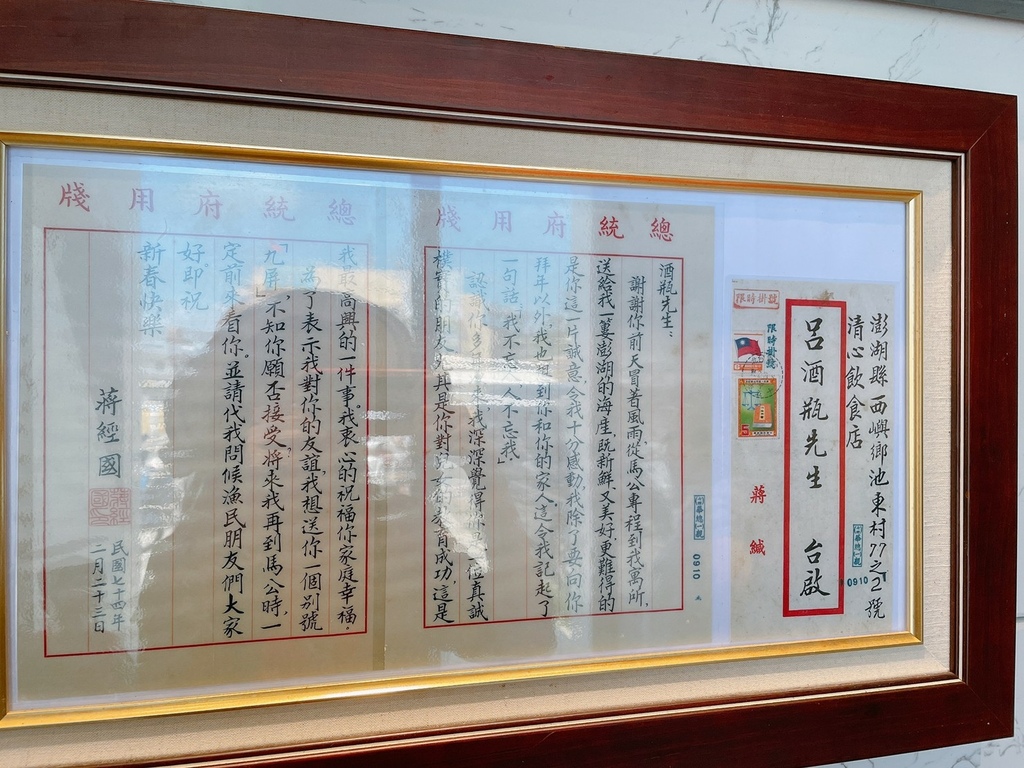 澎湖縣西嶼鄉池東村77之2號
清心飲食店
呂酒瓶先生 台啟
限時掛號
限時掛號
蔣緘
0910
總統府用牋
酒瓶先生：
謝謝你前天冒著風雨，從馬公專程到我寓所，
送給我一簍澎湖的海產，既新鮮又美好，更難得的
是你這一片誠意，令我十分感動。我除了要向你
拜年以外，我也想到你和你的家人。這令我記起了
一句話：「我不忘人，人不忘我」。
認識你多年來，我深深覺得你是一位真誠
樸實的朋友，尤其是你對兒女的教育成功，這是
0910
總統府用牋
我最高興的一件事。我衷心的祝福你家庭幸福。
為了表示我對你的友誼，我想送你一個別號
「九屏」，不知你願否接受？將來我再到馬公時，一
定前來看你。並請代我問候漁民朋友們大家
好 即祝
新春快樂
蔣經國
民國七十四年
二月二十三日